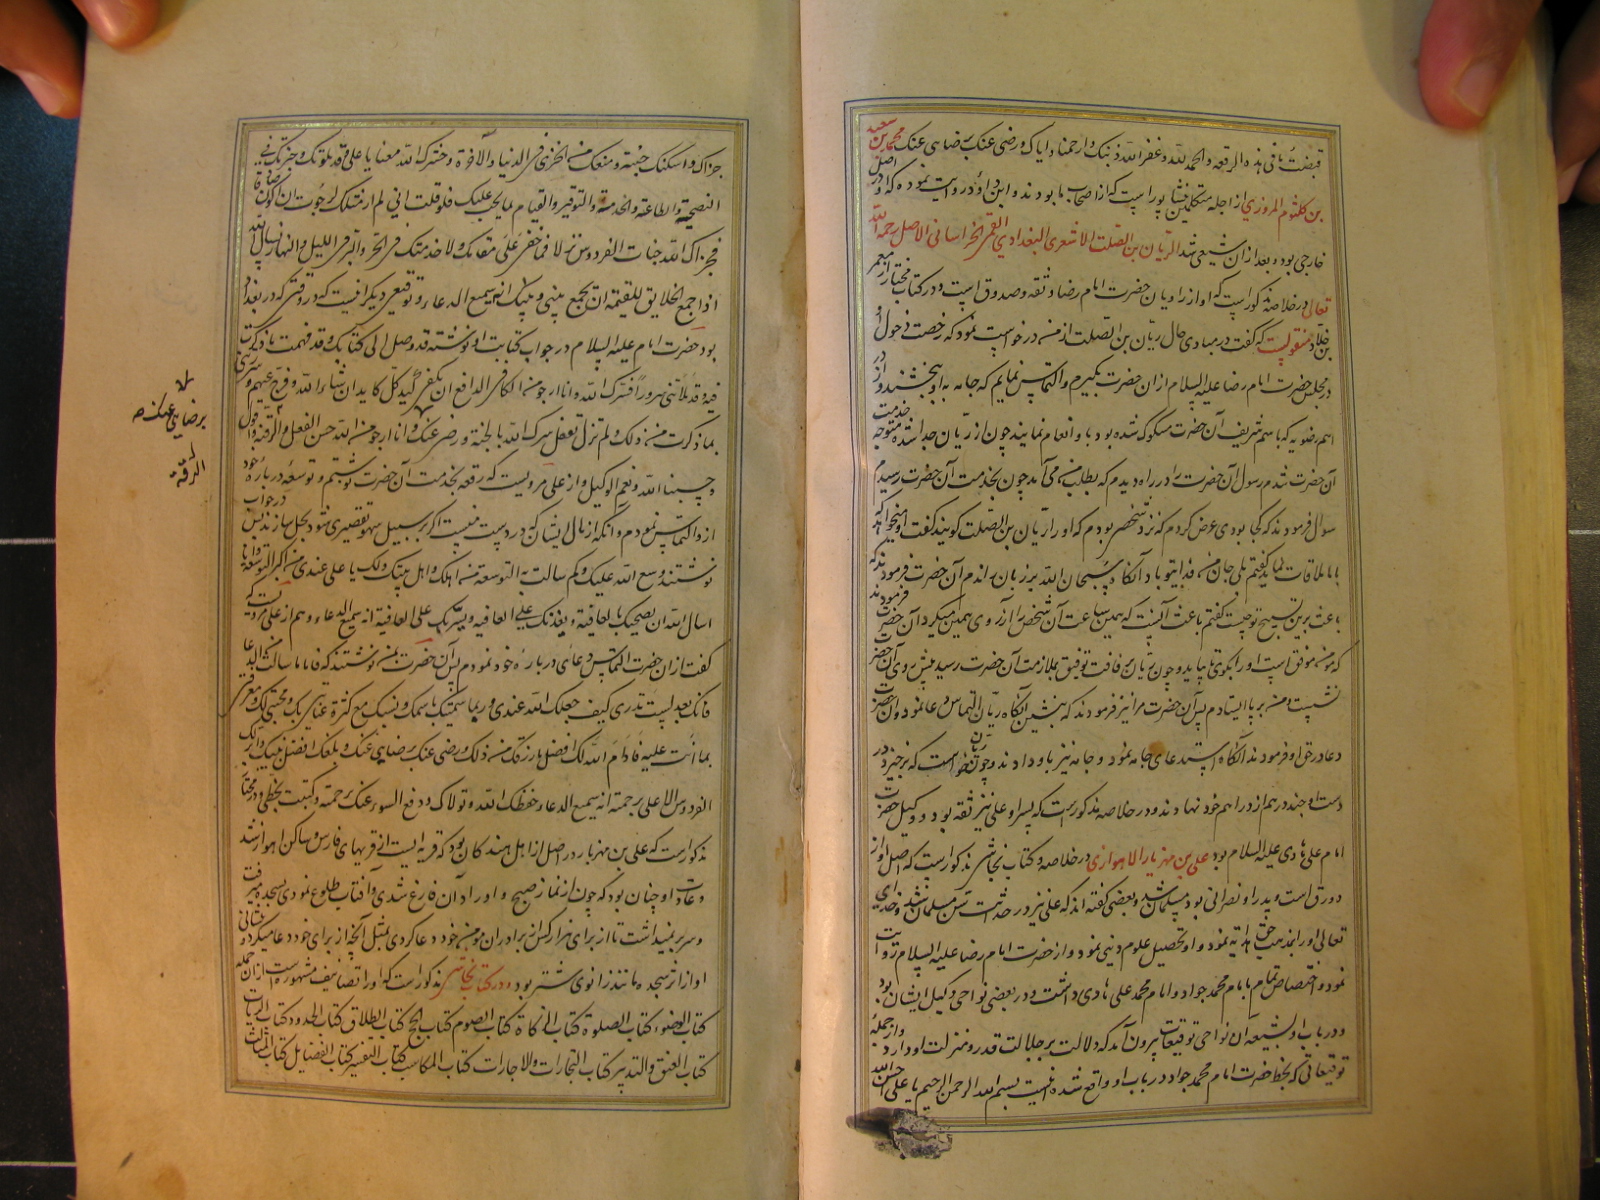 قبضت ما فی هذه الرقعه والحمد لله وغفر الله ذنبک وارحمنا وایاک ورضی عنک برضای عنک محمد بن سعید
بن کلثوم المروزی از اجله متکلمین نیشابور است که از اصحاب ما بودند و ابن داود روایت نموده که او در اصل
خارجی بود و بعد از آن شیعی شد الریان بن الصلت الاشعری البغدادی القمی الخراسانی الاصل رحمه الله
تعالی در خلاصه مذکور است که او از راویان حضرت امام رضا و ثقه و صدوق است و در کتاب مختار از معمر
بن خلاد منقولست که گفت در مبادی حال ریان بن الصلت از من درخواست نمود که رخصت دخول او
در مجلس حضرت امام رضا علیه السلام از آن حضرت بگیرم و التماس نمایم که جامه به او بخشند و از در
اسم رضویه که باسم شریف آن حضرت مسکوک شده بود باو انعام نمایند چون از ریان جدا شده متوجه خدمت
آن حضرت شدم رسول آن حضرت را در راه دیدم که بطلب من می آمد چون بخدمت آن حضرت رسیدم
سوال فرمودند که کجا بودی عرض کردم که نزد شخصی بودم که او را ریان بن الصلت گویند گفت او میخواهد که
با ما ملاقات نماید گفتم بلی جان من فدای تو باد آنگاه سبحان الله بر زبان راندم آن حضرت فرمودند که
باعث برین تسبیح تو چیست گفتم باعث آنست که همین ساعت آن شخص از من آرزوی همین میکرد آن حضرت فرمودند
که مومن موفق است او را بگوی تا بیاید و چون ریان برفاقت توفیق بملازمت آن حضرت رسید پیش روی آن حضرت
نشست من بر پا ایستادم پس آن حضرت مرا نیز فرمودند که بنشین آنگاه ریان التماس دعا نمود و آن حضرت
دعا در حق او فرمودند آنگاه استدعای جامه نمود و جامه نیز باو دادند و چون ریان خواست که برخیزد در
دست او چند درهم از دراهم خود نهادند و در خلاصه مذکور است که پسر او علی نیز ثقه بود و وکیل حضرت
امام علی هادی علیه السلام بود علی بن مهزیار الاهوازی در خلاصه و کتاب نجاشی مذکور است که اصل او از
دورق است و پدر او نصرانی بود مسلمان شد و بعضی گفته اند که علی نیز در حداثت سن مسلمان شد و خدای
تعالی او را بمذهب حق هدایه نمود و او تحصیل علوم دینی نمود و از حضرت امام رضا علیه السلام روایت
نمود و اختصاص تمام بامام محمد جواد و امام محمد علی هادی داشت و در بعضی نواحی وکیل ایشان بود
و در باب او بشیعه آن نواحی توقیعات بیرون آمد که دلالت بر جلالت قدر و منزلت او دارد و از جمله
توقیعاتی که بخط حضرت امام محمد جواد در باب او واقع شده اینست بسم الله الرحمن الرحیم یا علی احسن الله
جزاک واسکنک جنته ومنعک من الخزی فی الدنیا والآخرة وحشرک الله معنا یا علی قد بلوتک وخیرتک فی
النصیحة والطاعة والخدمة والتوقیر والقیام بما یجب علیک فلو قلت انی لم ار مثلک لرجوت ان اکون صادقا
فجزاک الله جنات الفردوس نزلا فما خفی علی مقامک ولا خدمتک فی الحر والبرد فی اللیل والنهار فاسال الله
اذا جمع الخلایق للقیمة ان یجمع بینی وبینک انه سمیع الدعاء و توقیعی دیگر اینست که در وقتی که در بغداد
بود حضرت امام علیه السلام در جواب کتابت او نوشته قد وصل الی کتابک وقد فهمت ما ذکرت
فیه وقد ملأتنی سرورا فسرک الله وانا ارجو من الکافی الدافع ان یکفی کید کل کاید ان شاء الله
بما ذکرت من ذلک ولم تزل تفعل سرک الله بالجنة ورضی عنک وانا ارجو من الله حسن الفعل والرقته واقول
حسبنا الله ونعم الوکیل و از علی مرویست که رقعه بخدمت آن حضرت نوشتم و توسعه درباره خود
ازو التماس نمودم و آنکه از مال ایشان که در دست منست اگر بر سبیل سهو تقصیری شود بحل سازند پس در جواب
نوشتند وسع الله علیک ولم سالت به التوسعة من اهلک واهل بیتک ولک یا علی عندی من اکبر التوسعة وانا
اسال الله ان یصحبک بالعافیة ویقدمک علی العافیه ویسترک علی العافیة انه سمیع الدعاء و هم از علی مرویست که
گفت از آن حضرت التماس دعای درباره خود نمودم پس آن حضرت بمن نوشتند که فاما ما سالت من الدعا
فانک بعد لست تدری کیف جعلک الله عندی وربما سمیتک باسمک ونسبک مع کثرة عنایتی بک ومحبتی لک ومعرفتی
بما انت علیه فادام الله لک افضل ما رزقک من ذلک ورضی عنک برضای عنک وبلغک افضل نیتک وانزلک
الفردوس الاعلی برحمته انه سمیع الدعاء وحفظک الله وتولاک ودفع السوء عنک برحمته وکتبت بخطی و در مختار
مذکور است که علی بن مهزیار در اصل از اهل هندکان بود که قریه ایست از قریهای فارس و ساکن اهواز شد
و عادت او چنان بود که چون از نماز صبح و اوراد آن فارغ شدی و آفتاب طلوع نمودی بسجده میرفت
و سر بر نمیداشت تا از برای هزار کس از برادران مومن خود دعا کردی بمثل آنچه از برای خود دعا میکرد و پیشانی
او از اثر سجده مانند زانوی شتر بود و در کتاب نجاشی مذکور است که او را تصانیف مشهوره است از آن جمله
کتاب الوضوء کتاب الصلوة کتاب الزکاة کتاب الصوم کتاب الحج کتاب الطلاق کتاب الحدود کتاب الدیات
کتاب العتق والتدبیر کتاب التجارات والاجارات کتاب المکاسب کتاب التفسیر کتاب الفضایل کتاب المثالب
برضای عنک
الرقه